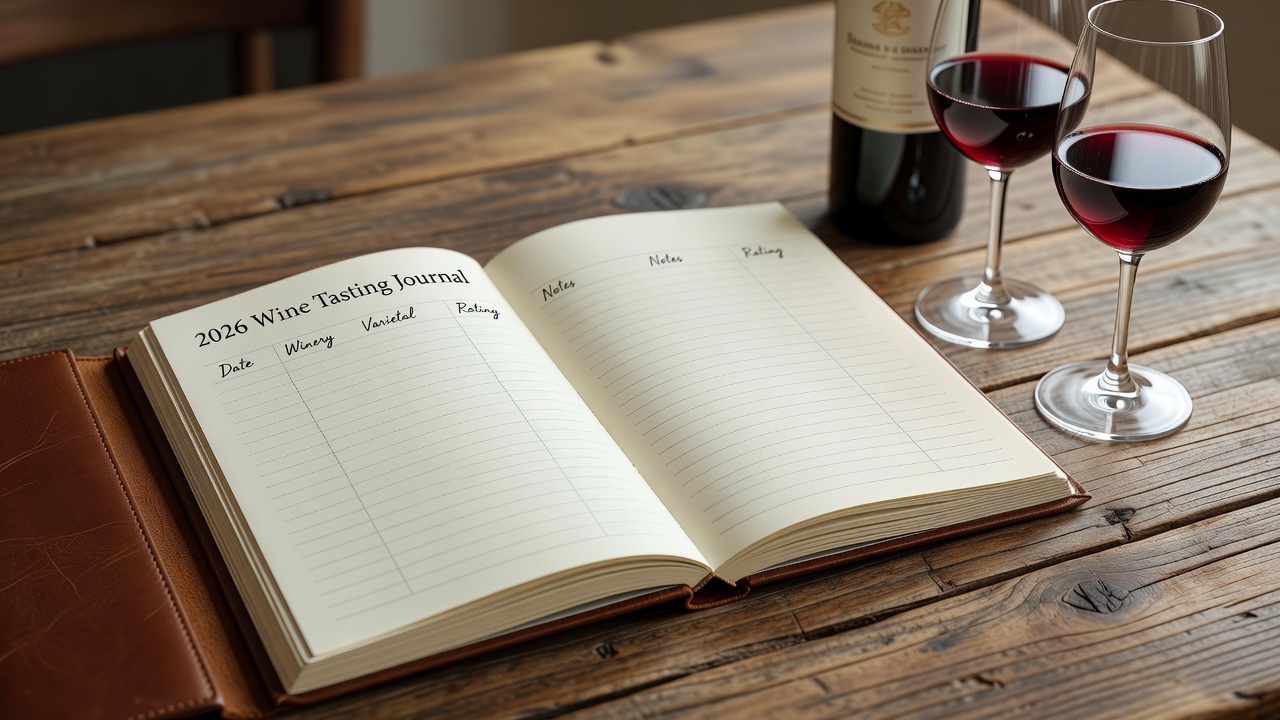 2026 Wine Tasting Journal
Date Winery Varietal Rating
Notes Notes Rating